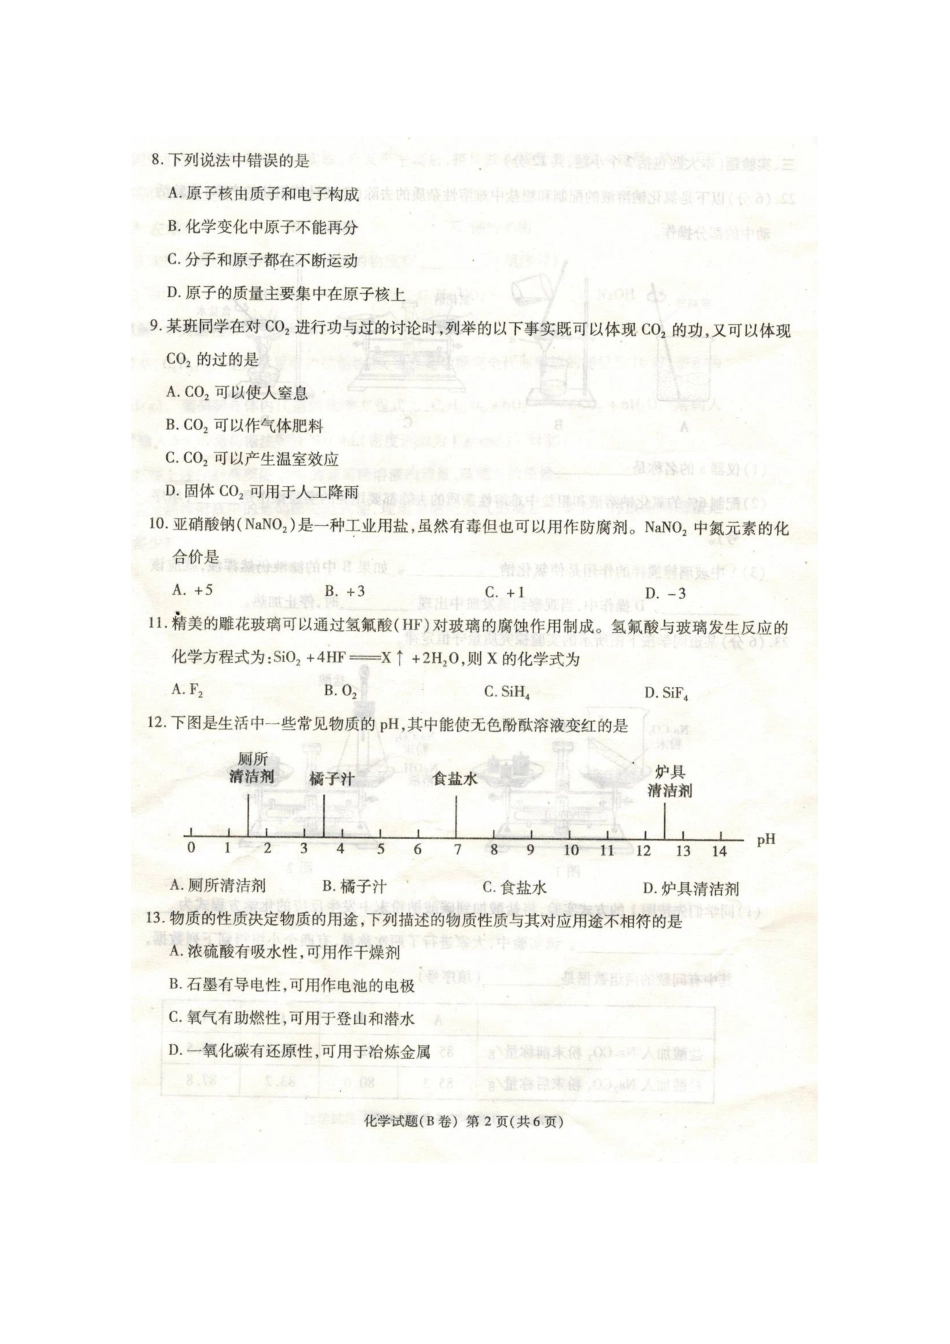 8.下列说法中错误的是
A.原子核由质子和电子构成
B.化学变化中原子不能再分
C.分子和原子都在不断运动
D.原子的质量主要集中在原子核上
9.某班同学在对 CO₂ 进行功与过的讨论时,列举的以下事实既可以体现 CO₂ 的功,又可以体现
CO₂ 的过的是
A. CO₂ 可以使人窒息
B. CO₂ 可以作气体肥料
C. CO₂ 可以产生温室效应
D. 固体 CO₂ 可用于人工降雨
10.亚硝酸钠(NaNO₂)是一种工业用盐,虽然有毒但也可以用作防腐剂。NaNO₂ 中氮元素的化
合价是
A. +5 B. +3 C. +1 D. -3
11.精美的雕花玻璃可以通过氢氟酸(HF)对玻璃的腐蚀作用制成。氢氟酸与玻璃发生反应的
化学方程式为:SiO₂ +4HF══X↑ +2H₂O,则 X 的化学式为
A. F₂ B. O₂ C. SiH₄ D. SiF₄
12.下图是生活中一些常见物质的 pH,其中能使无色酚酞溶液变红的是
厕所
清洁剂 橘子汁 食盐水 炉具
清洁剂
0 1 2 3 4 5 6 7 8 9 10 11 12 13 14 pH
A. 厕所清洁剂 B. 橘子汁 C. 食盐水 D. 炉具清洁剂
13.物质的性质决定物质的用途,下列描述的物质性质与其对应用途不相符的是
A.浓硫酸有吸水性,可用作干燥剂
B.石墨有导电性,可用作电池的电极
C.氧气有助燃性,可用于登山和潜水
D.一氧化碳有还原性,可用于冶炼金属
化学试题(B 卷) 第 2 页(共 6 页)